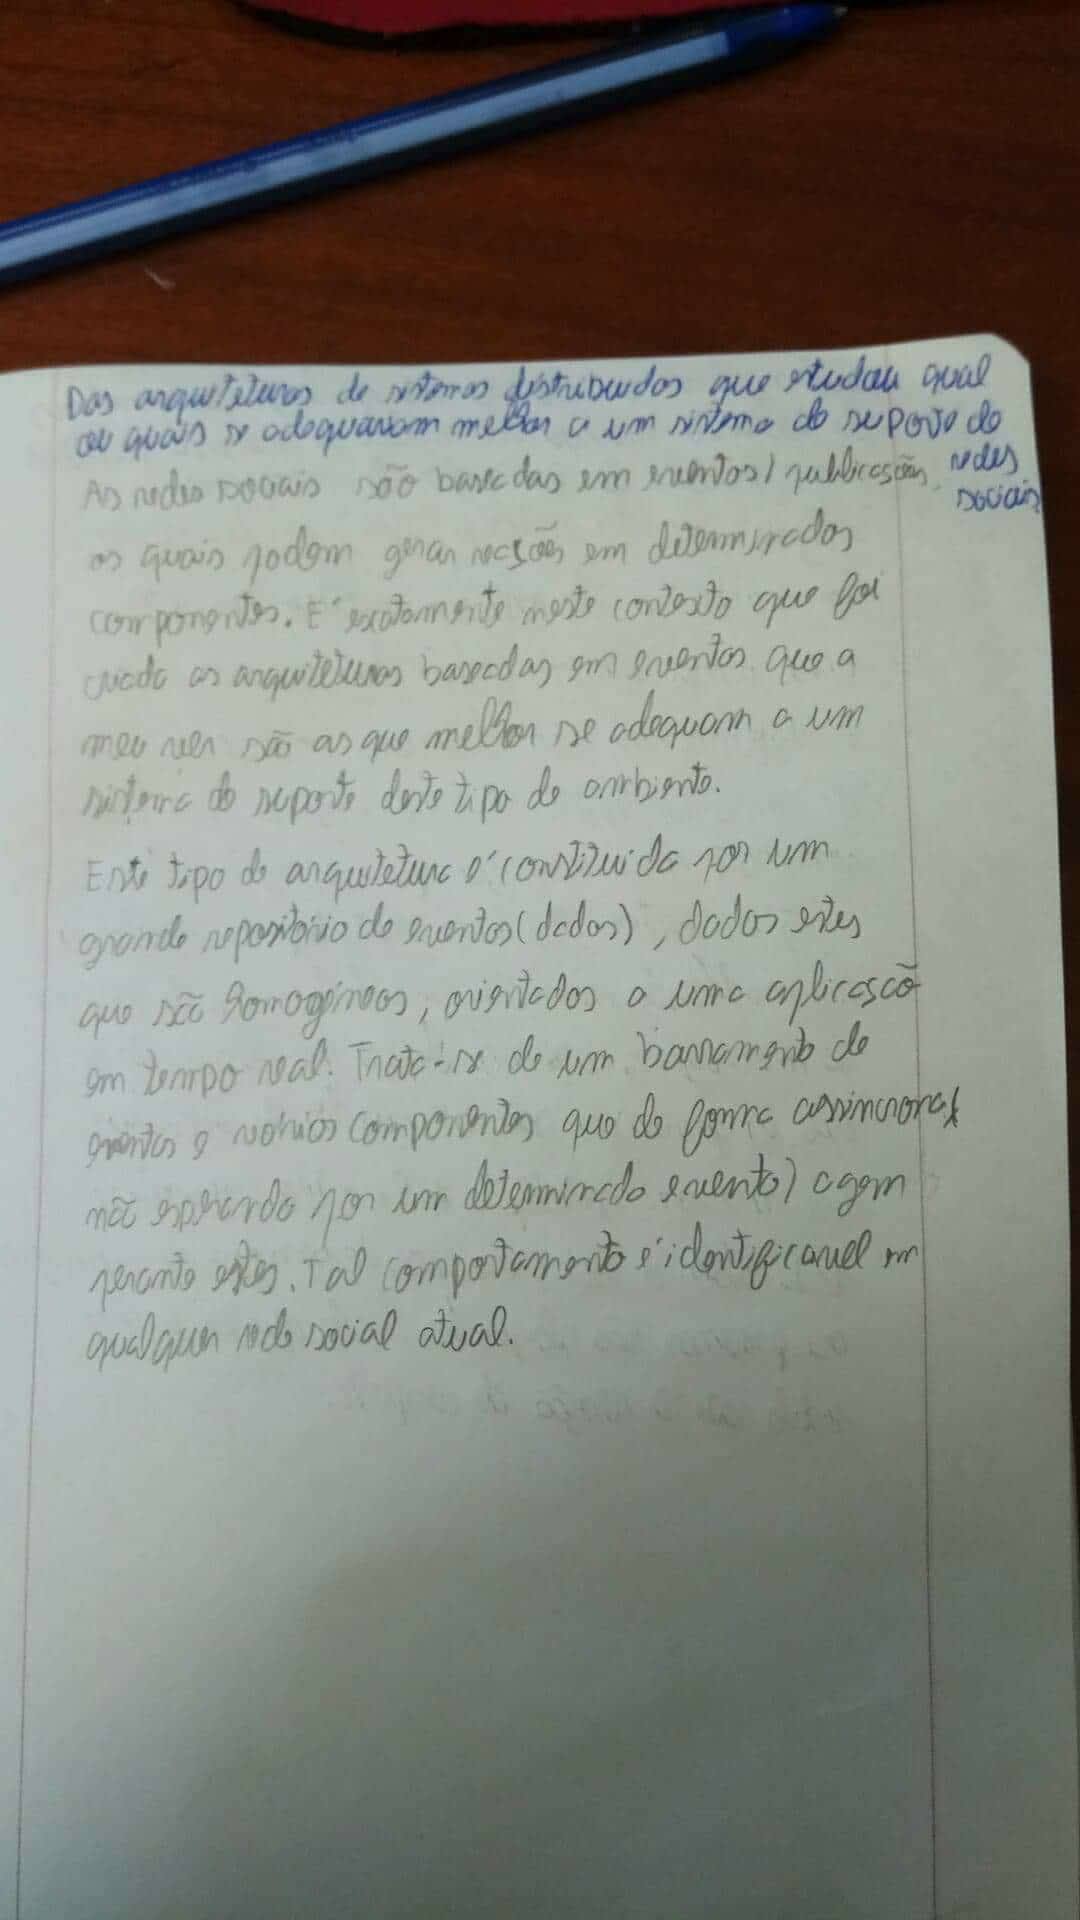 Das arquiteturas de sistemas distribuidos que estudou qual
ou quais se adequavam melhor a um sistema de suporte de
redes
sociais
As redes sociais são baseadas em eventos/publicações,
os quais podem gerar reações em determinados
componentes. É exatamente neste contexto que foi
criada as arquiteturas baseadas em eventos que a
meu ver são as que melhor se adequam a um
sistema de suporte deste tipo de ambiente.
Este tipo de arquitetura é constituida por um
grande repositório de eventos (dados), dados estes
que são homogéneos, orientados a uma aplicação
em tempo real. Trata-se de um barramento de
eventos e vários componentes que de forma assincrona(
não esperando por um determinado evento) agem
perante estes. Tal comportamento é identificavel em
qualquer rede social atual.